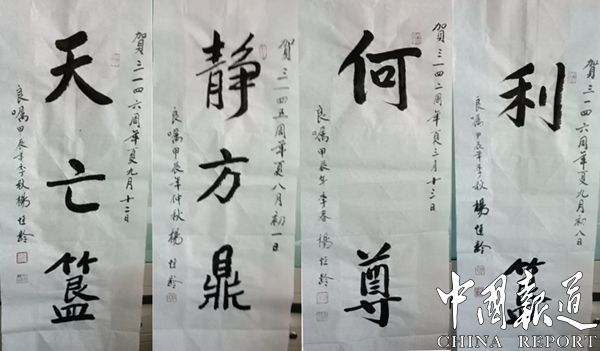 賀三一四六周年夏九月初八日
利簋
良嘱甲辰年季秋楊恒龄
賀三一四二周年夏三月十三日
何尊
良嘱甲辰年季春楊恒龄
賀三一四五周年夏八月初一日
静方鼎
良嘱甲辰年仲秋楊恒龄
賀三一四六周年夏九月十二日
天亡簋
良嘱甲辰年季秋楊恒龄
中國報道
CHINA REPORT